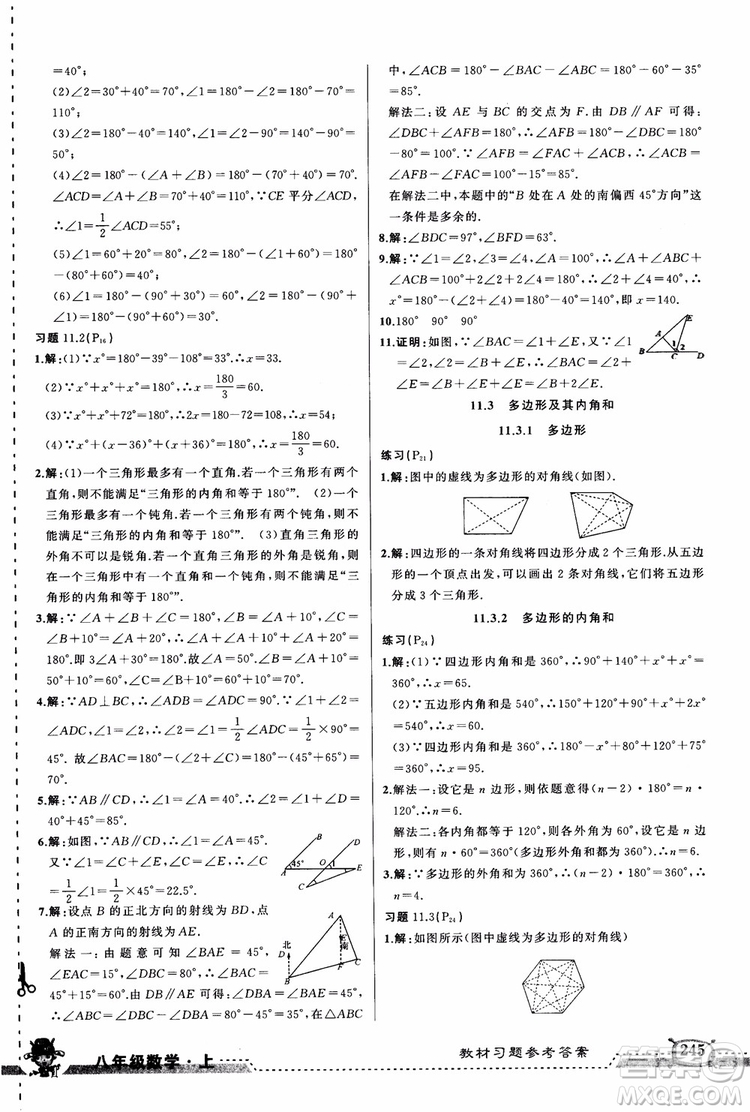 =40°;
(2)∠2=30°+40°=70°,∠1=180°-∠2=180°-70°=
110°;
(3)∠2=180°-40°=140°,∴∠1=180°-∠2=180°-
140°=40°;
(4)∠2=180°-(∠A+∠B)=180°-110°=70°,∵
∠ACD=∠A+∠B=110°,又∵CE平分∠ACD,
∴∠1=1/2∠ACD=55°;
(5)∠1=60°+20°=80°,∠2=180°-(∠1+60°)=
180°-(80°+60°)=40°;
(6)∠1=180°-(∠A+60°)=180°-(30°+60°)=
习题 11.2(P₁₆)
1.解:(1)∵x°=180°-39°-108°=33°,∴x=33.
(2)∵x°+x°+x°=180°,∴x=180/3=60.
(3)∵x°+x°+72°=180°,∴2x=180-72,∴x=54.
(4)∵x°+(x-36)°+(x+36)°=180°,∴x=180/3=60.
2.解:(1)一个三角形最多有一个直角.若有两个
直角,则不能满足“三角形的内角和等于180°”. (2)一个
三角形最多有一个钝角.若有两个钝角,则不
能满足“三角形的内角和等于180°”. (3)直角三角形的
外角不可以是锐角.若一个直角三角形的外角是锐角,
则在一个三角形中有一个直角和一个钝角,不能满足“三
角形的内角和等于180°”.
3.解:∵∠A+∠B+∠C=180°,∠B=∠A+10°,∠C=
∠B+10°=∠A+20°,∴∠A+∠A+10°+∠A+20°=
180.即3∠A=150°,∴∠A=50°,故∠B=∠A+10°=
50°+10°=60°,∠C=∠B+10°=60°+10°=70°.
4.解:∵AD⊥BC,∴∠ADB=∠ADC=90°.∵∠1+∠2=
∠ADC,∠1=∠2,∴∠1=∠2=1/2∠ADC=1/2×90°=
45°.故∠BAC=180°-(∠2+∠C)=180°-(45°+65°)=
70°.
5.解:∵AB∥CD,∴∠A=∠1=40°,∴∠2=∠1+∠D=
40°+45°=85°.
6.解:如图,∵AB∥CD,∴∠1=∠A=45°.
又∵∠1=∠C+∠E,∠C=∠E,∴∠C
=1/2∠1=1/2×45°=22.5°.
B
D
A
45°
O
1
E
C
7.解:设点B的正北方向的射线为BD,点
A的正南方向的射线为AE.
解法一:由题意可知∠BAC=∠BAE+
∠EAC=45°+15°=60°,∠ABC=
∠DBC-∠DBA=80°-45°=35°.在△ABC
北
D
B
A
南
F
C
中,∠ACB=180°-∠BAC-∠ABC=180°-60°-35°
=85°.
解法二:设AE与BC的交点为F.由DB∥AF可得:
∠DBC+∠AFB=180°,∴∠AFB=180°-∠DBC=
180°-80°=100°,∴∠ACB=∠AFB-∠FAC=100°-
15°=85°.
在解法二中,本题中的“B处在A处的南偏西45°方向”这
一条件是多余的.
8.解:∠BDC=97°,∠BFD=63°.
9.解:∵∠1=∠2,∠3=∠4,∠A=100°,∴∠A+∠ABC+
∠ACB=∠A+2∠2+2∠4=180°,∴∠2+∠4=40°,∴
x°=180°-(∠2+∠4)=180°-40°=140°,即x=140.
10.180° 90° 90°
11.证明:如图,∵∠BAC=∠1+∠E,又∵∠1
=∠2,∠2=∠B+∠E,∴∠BAC=∠B+
∠E+∠E=∠B+2∠E.
E
A
1
2
B
C
D
11.3 多边形及其内角和
11.3.1 多边形
练习(P₂₁)
1.解:图中的虚线为多边形的对角线(如图).
2.解:四边形的一条对角线将四边形分成2个三角形.从五边
形的一个顶点出发,可以画出2条对角线,它们将五边形
分成3个三角形.
11.3.2 多边形的内角和
练习(P₂₄)
1.解:(1)∵四边形内角和是360°,∴x°+90°+x°+140°=
360°,∴x=65.
(2)∵五边形内角和是540°,∴150°+120°+90°+2x°+x°
=540°,∴x=60.
(3)∵四边形内角和为360°,
∴x=95.
2.解:解法一:设它是n边形,则依题意得(n-2)·180°=
120°·n,∴n=6.
解法二:各内角都等于120°,则各外角为60°,设它是n边
形,则有n·60°=360°,∴n=6.
3.解:∵多边形的外角和是360°,∴(n-2)·180°=360°,∴
n=4.
习题 11.3(P₂₄)
1.解:如图所示(图中虚线为多边形的对角线)
八年级数学·上
教材习题参考答案
245
MXQE.COM